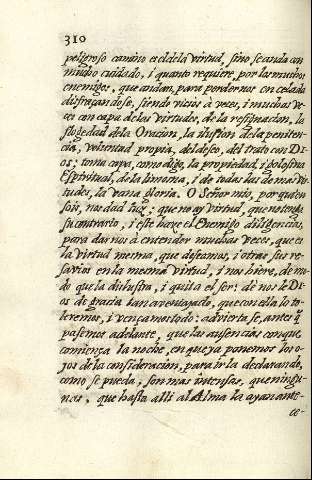 310
peligroso camino es el de la virtud, sino se anda con
mucho cuidado, i quanto requiere, por los muchos
enemigos, que andan, para pordernos en celada
disfraçandose, siendo vicios à veces, i muchas ve-
ces con capa de las virtudes, de la resignacion, la
flogedad de la Oracion, la ilusion de la peniten-
cia, voluntad propia, del deseo, del trato con DI-
os; toma capa, como digo, la propiedad, i golosina
Espiritual, de la limosna, i de todas las demas vir-
tudes, la vana gloria. O Señor mio, por quien
sois, nos dad luz; que no ay virtud, que no tenga
su contrario, i este hace el Enemigo diligencias,
para darnos à entender muchas veces, que es
la virtud mesma, que deseamos, i otras sus re-
savios en la mesma virtud, i nos hiere, de mo-
do que la dilustra, i quita el ser: de nos le DI-
os de gracia tan aventajado, que con ello lo to-
leremos, i vençamos todo: advierta se, antes q̃
pasemos adelante, que las ausencias con que
comiença la noche, en que ya ponemos los o-
jos de la consideracion, para ir la declarando,
como se pueda, son mas intensas, que ningu-
nas, que hasta alli al Alma la ayan ante-
ce-